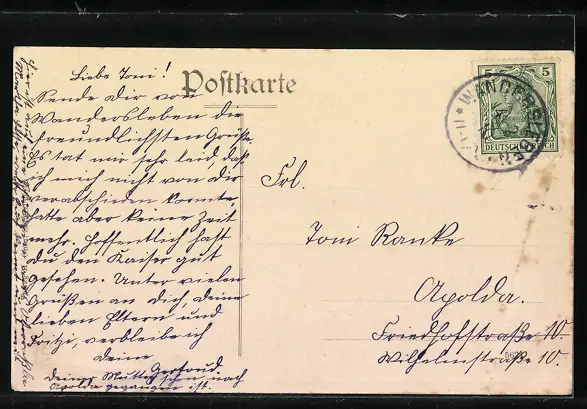 Postkarte
Liebe Toni!
Sende Dir von
Wandersleben die
freundlichsten Grüße.
Es tat mir sehr leid, daß
ich mich nicht von dir
verabschieden konnte,
hatte aber keine Zeit
mehr. Hoffentlich hast
du den Kaiser gut
gesehen. Unter vielen
Grüßen an Dich, deine
lieben Eltern und
Fritzi, verbleibe ich
deine
Gertrud.
Deine Mutter schon nach
Apolda gegangen ist.
5 5
DEUTSCHES REICH
WANDERSLEBEN
Frl.
Toni Ranke
Apolda.
Friedhofstraße 10.
Wilhelmstraße 10.